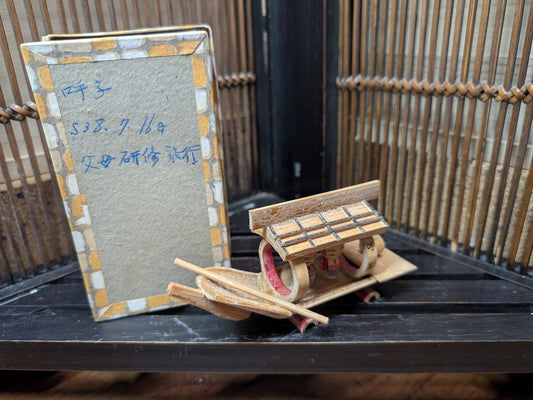 呼子
S38.7.16日
父母研修旅行